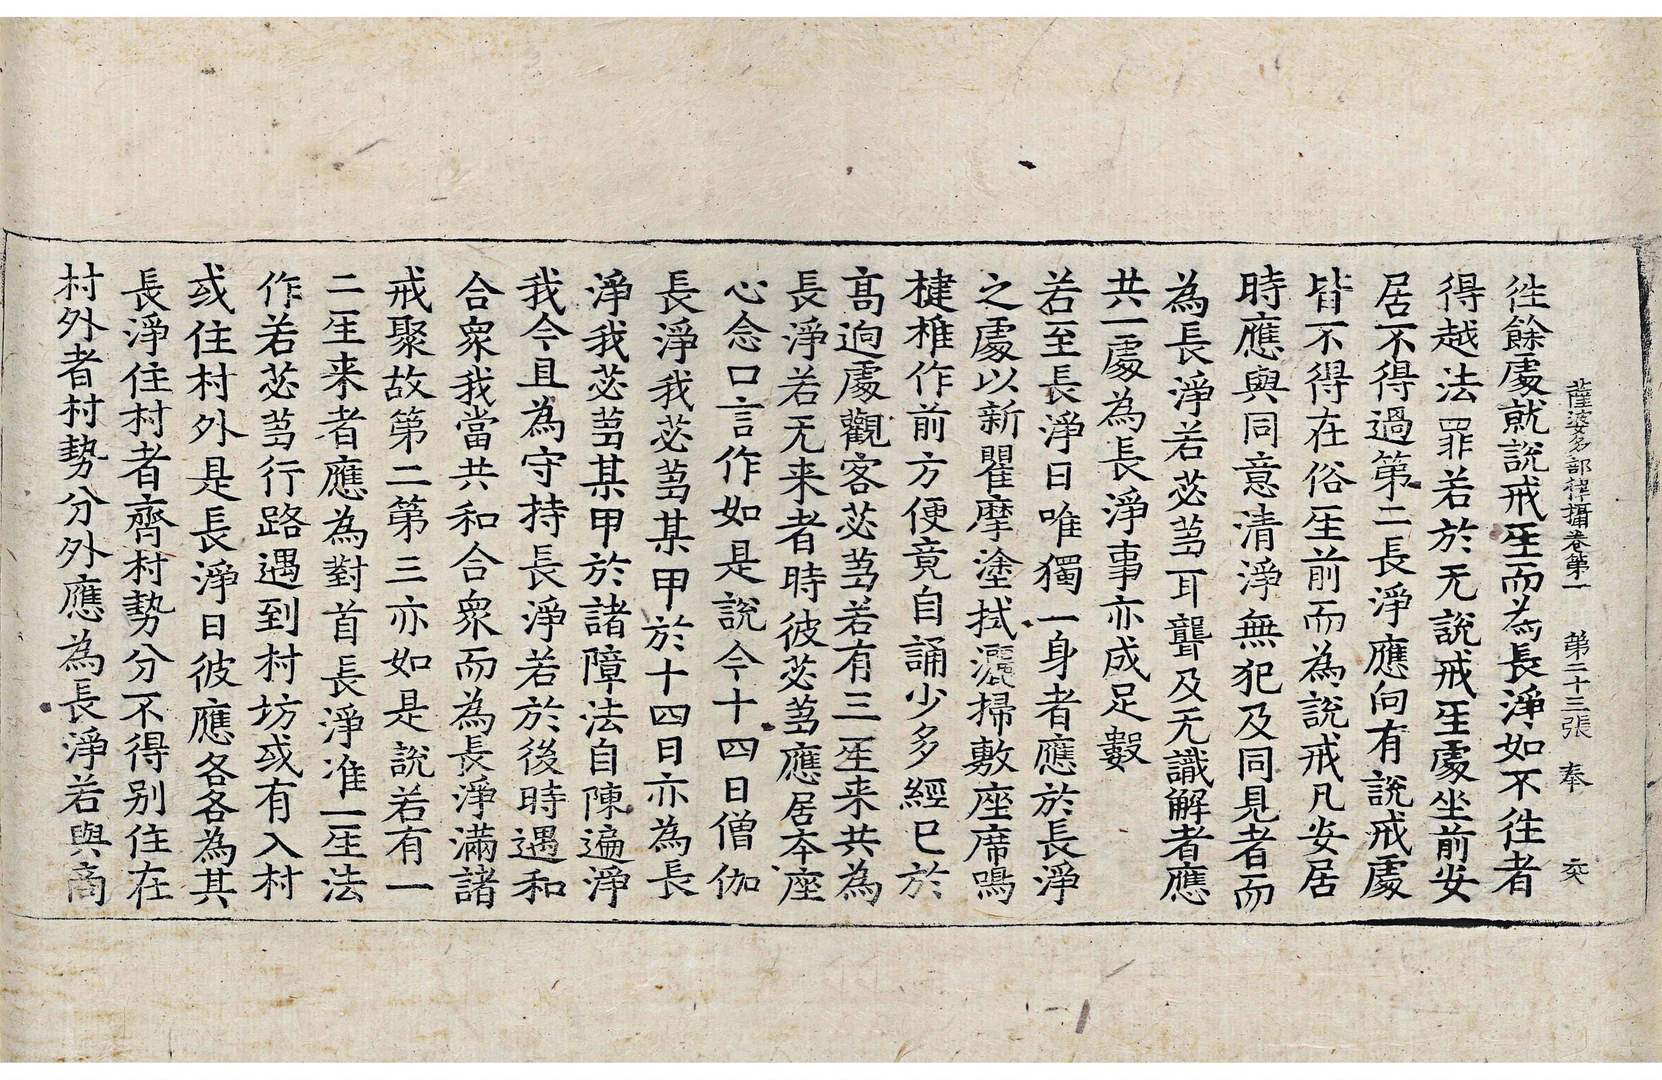 薩婆多部律攝卷第一　第二十三張　奉
徃餘處就說戒𤯔而為長淨如不徃者
得越法罪若於无說戒𤯔處坐前安
居不得過第二長淨應向有說戒處
皆不得在俗𤯔前而為說戒凡安居
時應與同意清淨無犯及同見者而
為長淨若苾芻耳聾及无識解者應
共一處為長淨事亦成足數
若至長淨日唯獨一身者應於長淨
之處以新瞿摩塗拭灑掃敷座席鳴
揵椎作前方便竟自誦少多經已於
高迥處觀客苾芻若有三𤯔来共為
長淨若无来者時彼苾芻應居本座
心念口言作如是說今十四日僧伽
長淨我苾芻某甲於十四日亦為長
淨我苾芻某甲於諸障法自陳遍淨
我今且為守持長淨若於後時遇和
合衆我當共和合衆而為長淨滿諸
戒聚故第二第三亦如是說若有一
二𤯔来者應為對首長淨准一𤯔法
作若苾芻行路遇到村坊或有入村
或住村外是長淨日彼應各各為其
長淨住村者齊村勢分不得別住在
村外者村勢分外應為長淨若與商